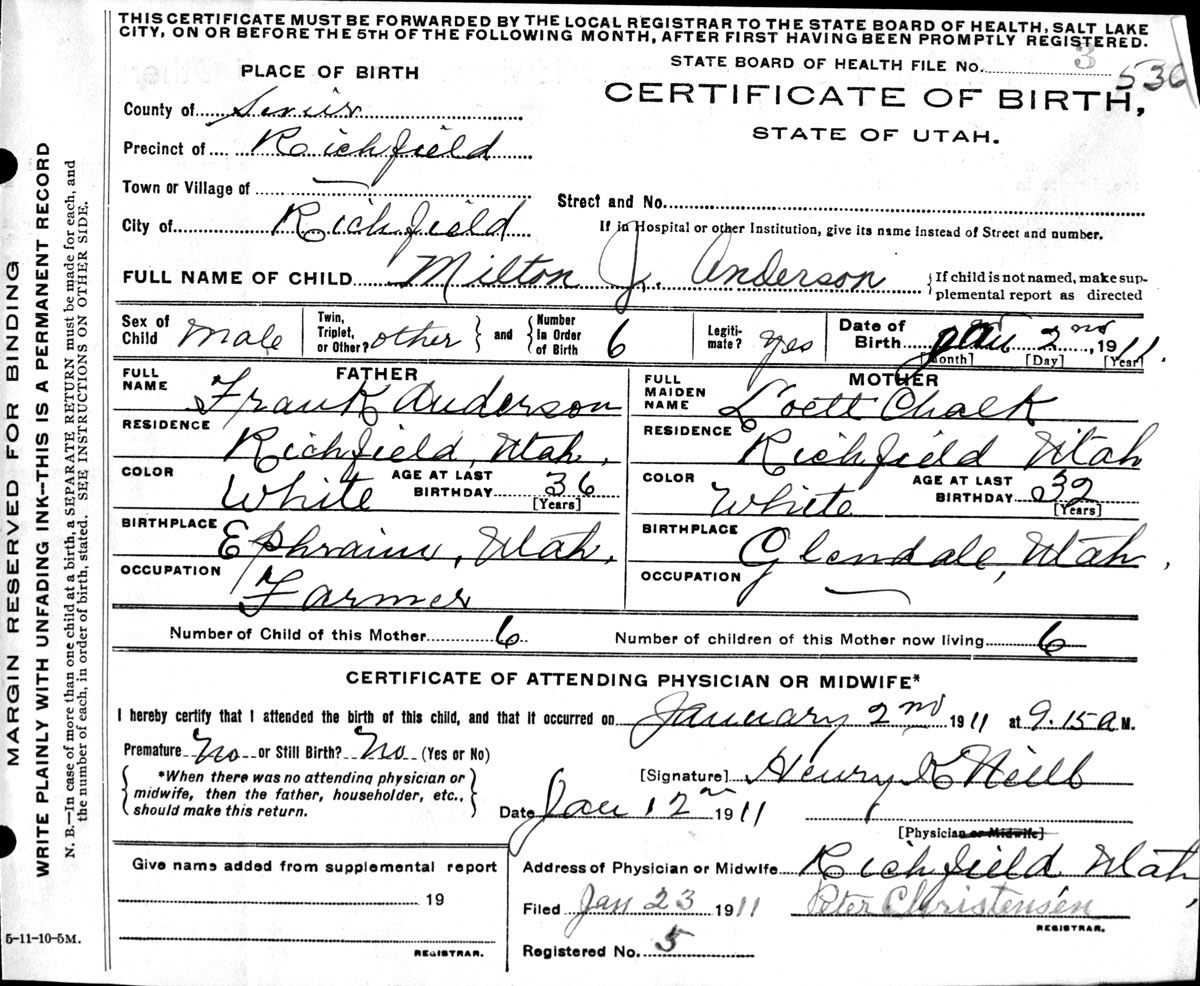 THIS CERTIFICATE MUST BE FORWARDED BY THE LOCAL REGISTRAR TO THE STATE BOARD OF HEALTH, SALT LAKE
CITY, ON OR BEFORE THE 5TH OF THE FOLLOWING MONTH, AFTER FIRST HAVING BEEN PROMPTLY REGISTERED.
STATE BOARD OF HEALTH FILE No. 3 536
PLACE OF BIRTH
CERTIFICATE OF BIRTH,
STATE OF UTAH.
County of Sevier
Precinct of Richfield
Town or Village of
Street and No.
City of Richfield
If in Hospital or other Institution, give its name instead of Street and number.
FULL NAME OF CHILD Milton J. Anderson
{If child is not named, make sup-
plemental report as directed
Sex of Child Male
Twin, Triplet, or Other? other } and { Number In Order of Birth 6
Legiti-mate? Yes
Date of Birth Jan 2nd, 1911.
[Month] [Day] [Year]
FATHER
FULL NAME Frank Anderson
RESIDENCE Richfield, Utah.
COLOR White AGE AT LAST BIRTHDAY 36
[Years]
BIRTHPLACE Ephraim, Utah.
OCCUPATION Farmer
MOTHER
FULL MAIDEN NAME Loett Chalk
RESIDENCE Richfield Utah
COLOR White AGE AT LAST BIRTHDAY 32
[Years]
BIRTHPLACE Glendale, Utah,
OCCUPATION
Number of Child of this Mother 6 Number of children of this Mother now living 6
CERTIFICATE OF ATTENDING PHYSICIAN OR MIDWIFE*
I hereby certify that I attended the birth of this child, and that it occurred on January 2nd 1911 at 9.15 a M.
Premature No or Still Birth? No (Yes or No)
{ *When there was no attending physician or
midwife, then the father, householder, etc.,
should make this return. }
[Signature] Henry K Neill
Date Jan 12 1911
[Physician or Midwife]
Give name added from supplemental report
19
REGISTRAR.
Address of Physician or Midwife Richfield Utah,
Filed Jan 23 1911 Peter Christensen
REGISTRAR.
Registered No. 5
5-11-10-5M.
MARGIN RESERVED FOR BINDING
WRITE PLAINLY WITH UNFADING INK--THIS IS A PERMANENT RECORD
N. B.—In case of more than one child at birth, a SEPARATE RETURN must be made for each, and
the number of each, in order of birth, stated. SEE INSTRUCTIONS ON OTHER SIDE.